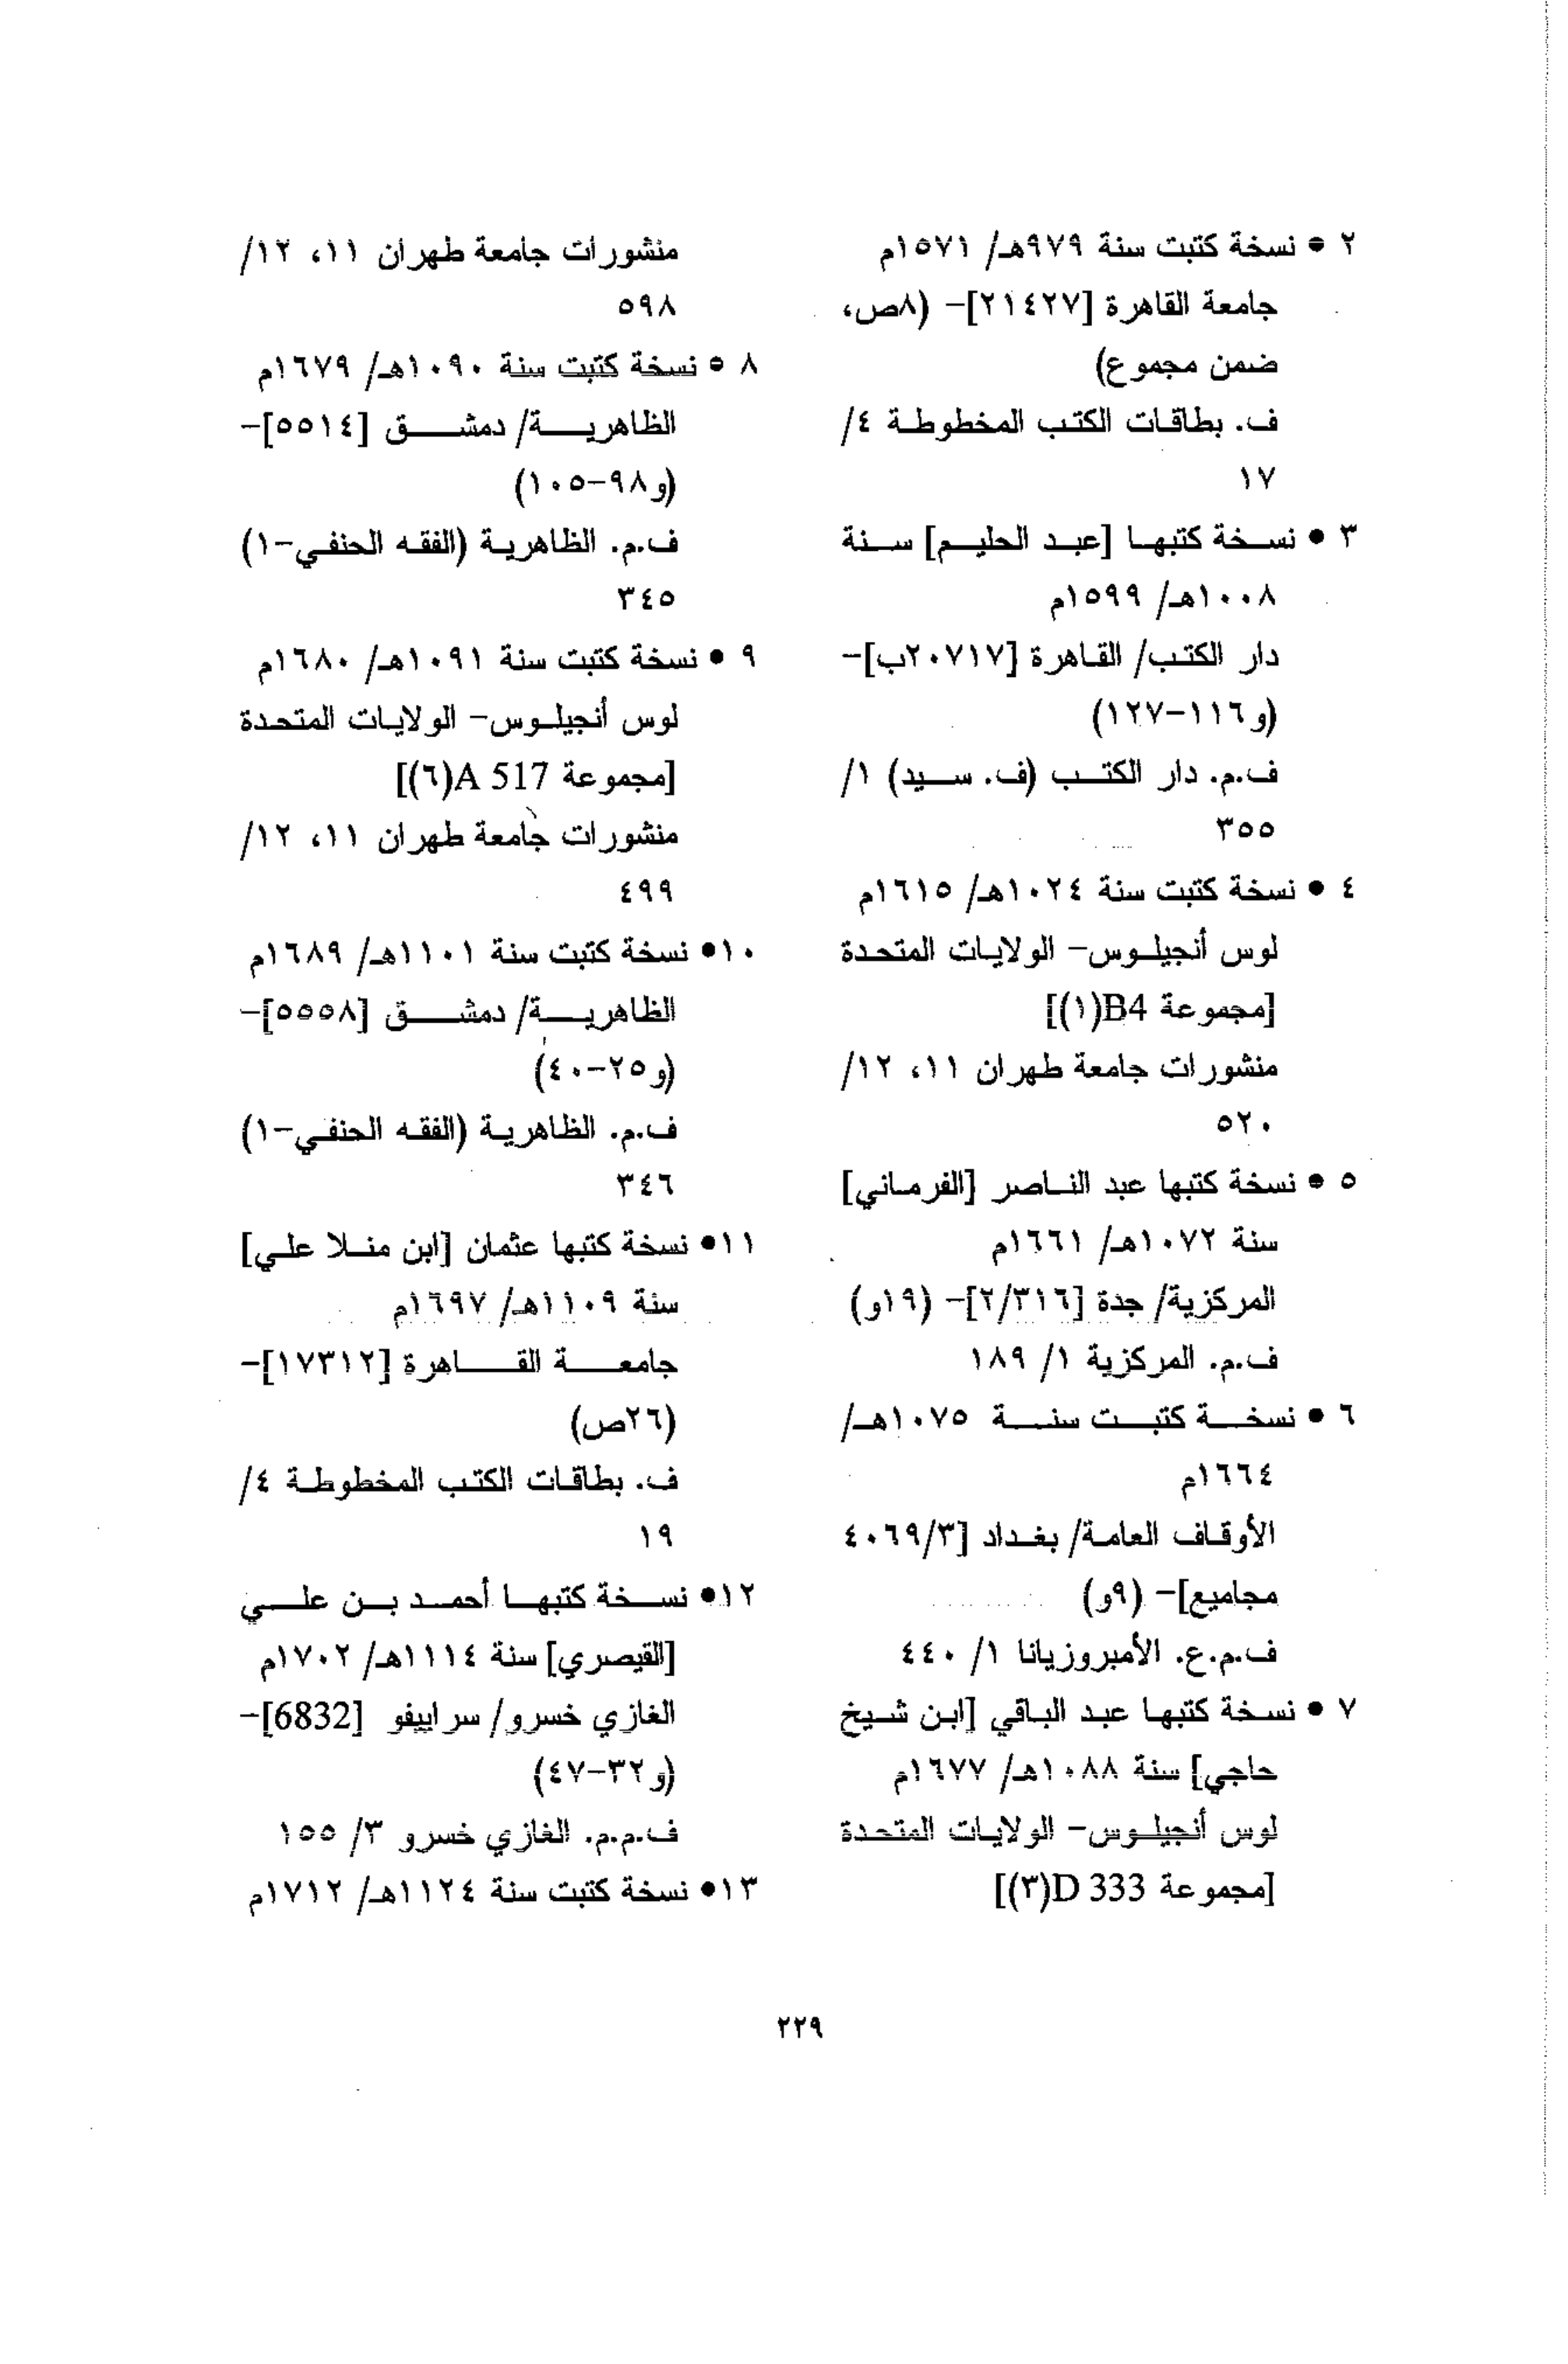 ٢ • نسخة كتبت سنة ٩٧٩هـ/ ١٥٧١م
جامعة القاهرة [٢١٤٢٧]- (٨ص،
ضمن مجموع)
ف. بطاقات الكتب المخطوطة ٤/
١٧
٣ • نسخة كتبها [عبد الحليم] سنة
١٠٠٨هـ/ ١٥٩٩م
دار الكتب/ القاهرة [٢٠٧١٧ب]-
(و١١٦-١٢٧)
ف.م. دار الكتب (ف. سيد) ١/
٣٥٥
٤ • نسخة كتبت سنة ١٠٢٤هـ/ ١٦١٥م
لوس أنجيلوس- الولايات المتحدة
[مجموعة B4(١)]
منشورات جامعة طهران ١١، ١٢/
٥٢٠
٥ • نسخة كتبها عبد الناصر [الفرماني]
سنة ١٠٧٢هـ/ ١٦٦١م
المركزية/ جدة [٢/٣١٦]- (١٩و)
ف.م. المركزية ١/ ١٨٩
٦ • نسخة كتبت سنة ١٠٧٥هـ/
١٦٦٤م
الأوقاف العامة/ بغداد [٤٠٦٩/٣
مجاميع]- (٩و)
ف.م.ع. الأمبروزيانا ١/ ٤٤٠
٧ • نسخة كتبها عبد الباقي [ابن شيخ
حاجي] سنة ١٠٨٨هـ/ ١٦٧٧م
لوس أنجيلوس- الولايات المتحدة
[مجموعة D 333(٣)]
منشورات جامعة طهران ١١، ١٢/
٥٩٨
٨ • نسخة كتبت سنة ١٠٩٠هـ/ ١٦٧٩م
الظاهرية/ دمشق [٥٥١٤]-
(و٩٨-١٠٥)
ف.م. الظاهرية (الفقه الحنفي-١)
٣٤٥
٩ • نسخة كتبت سنة ١٠٩١هـ/ ١٦٨٠م
لوس أنجيلوس- الولايات المتحدة
[مجموعة A 517(٦)]
منشورات جامعة طهران ١١، ١٢/
٤٩٩
١٠• نسخة كتبت سنة ١١٠١هـ/ ١٦٨٩م
الظاهرية/ دمشق [٥٥٥٨]-
(و٢٥-٤٠)
ف.م. الظاهرية (الفقه الحنفي-١)
٣٤٦
١١• نسخة كتبها عثمان [ابن منلا علي]
سنة ١١٠٩هـ/ ١٦٩٧م
جامعة القاهرة [١٧٣١٢]-
(٢٦ص)
ف. بطاقات الكتب المخطوطة ٤/
١٩
١٢• نسخة كتبها أحمد بن علي
[القيصري] سنة ١١١٤هـ/ ١٧٠٢م
الغازي خسرو/ سراييفو [6832]-
(و٣٢-٤٧)
ف.م.م. الغازي خسرو ٣/ ١٥٥
١٣• نسخة كتبت سنة ١١٢٤هـ/ ١٧١٢م
٢٢٩